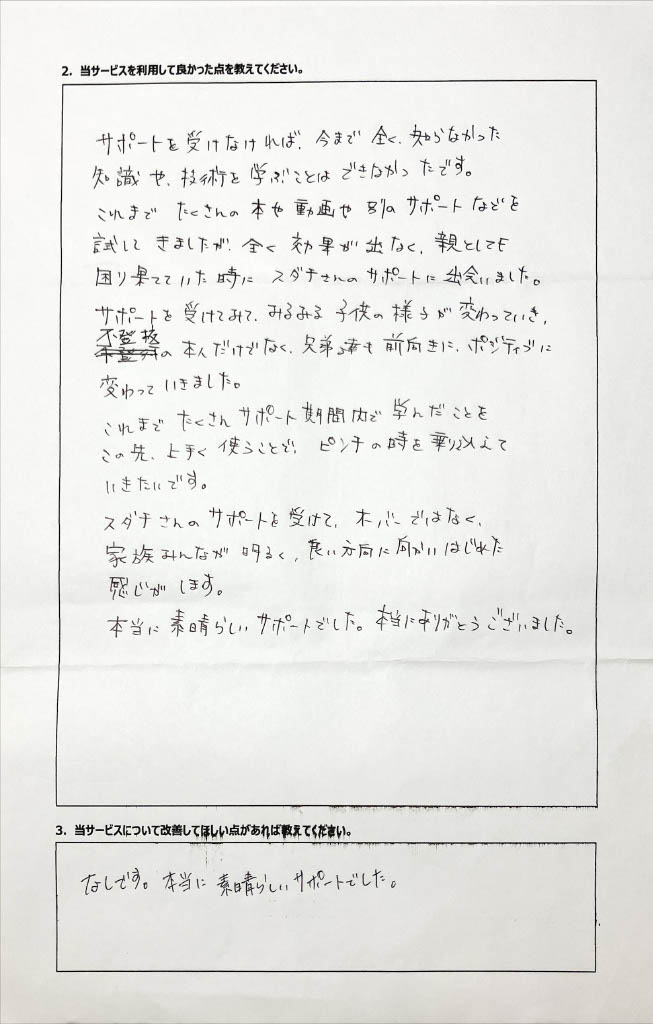 2. 当サービスを利用して良かった点を教えてください。
サポートを受けなければ、今まで全く、知らなかった
知識や、技術を学ぶことはできなかったです。
これまでたくさんの本や動画や別のサポートなどを
試してきましたが、全く効果が出なく、親としても
困り果てていた時にスダチさんのサポートに出会いました。
サポートを受けてみて、みるみる子供の様子が変わっていき、
不登校の本人だけでなく、兄弟達も前向きに、ポジティブに
変わっていきました。
これまでたくさんサポート期間内で学んだことを
この先、上手く使うことで、ピンチの時を乗り越えて
いきたいです。
スダチさんのサポートを受けて、オーバーではなく、
家族みんなが明るく、良い方向に向かいはじめた
感じがします。
本当に素晴らしいサポートでした。本当にありがとうございました。
3. 当サービスについて改善してほしい点があれば教えてください。
なしです。本当に素晴らしいサポートでした。